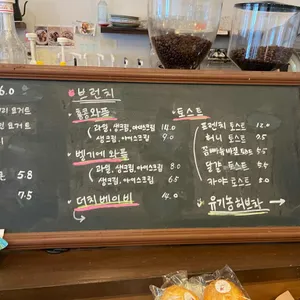 6.0
리 요거트
린 요거트
5.8
7.5
브런치
통통와플
(과일, 생크림, 아이스크림 14.0
생크림, 아이스크림 9.0
벨기에와플
(과일, 생크림, 아이스크림 8.0
생크림, 아이스크림 6.5
더치베이비 14.0
토스트
프렌치 토스트 12.0
허니 토스트 7.5
토스트 5.5
자야 토스트 5.0
유기농허브차 →